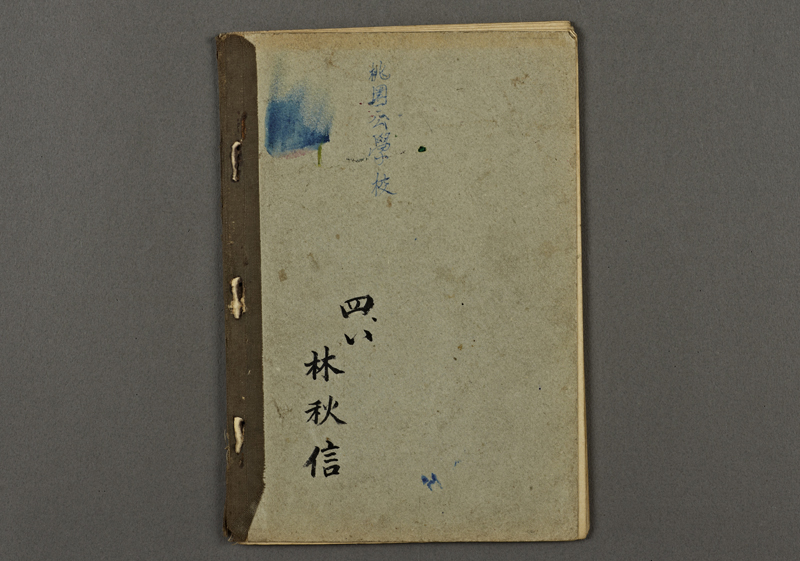 桃園公學校
四、い
林秋信